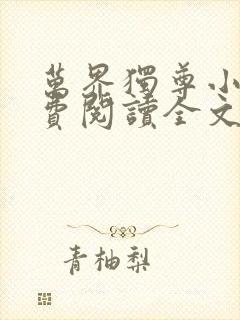 萬界獨尊小
費閱讀全文
青柚梨